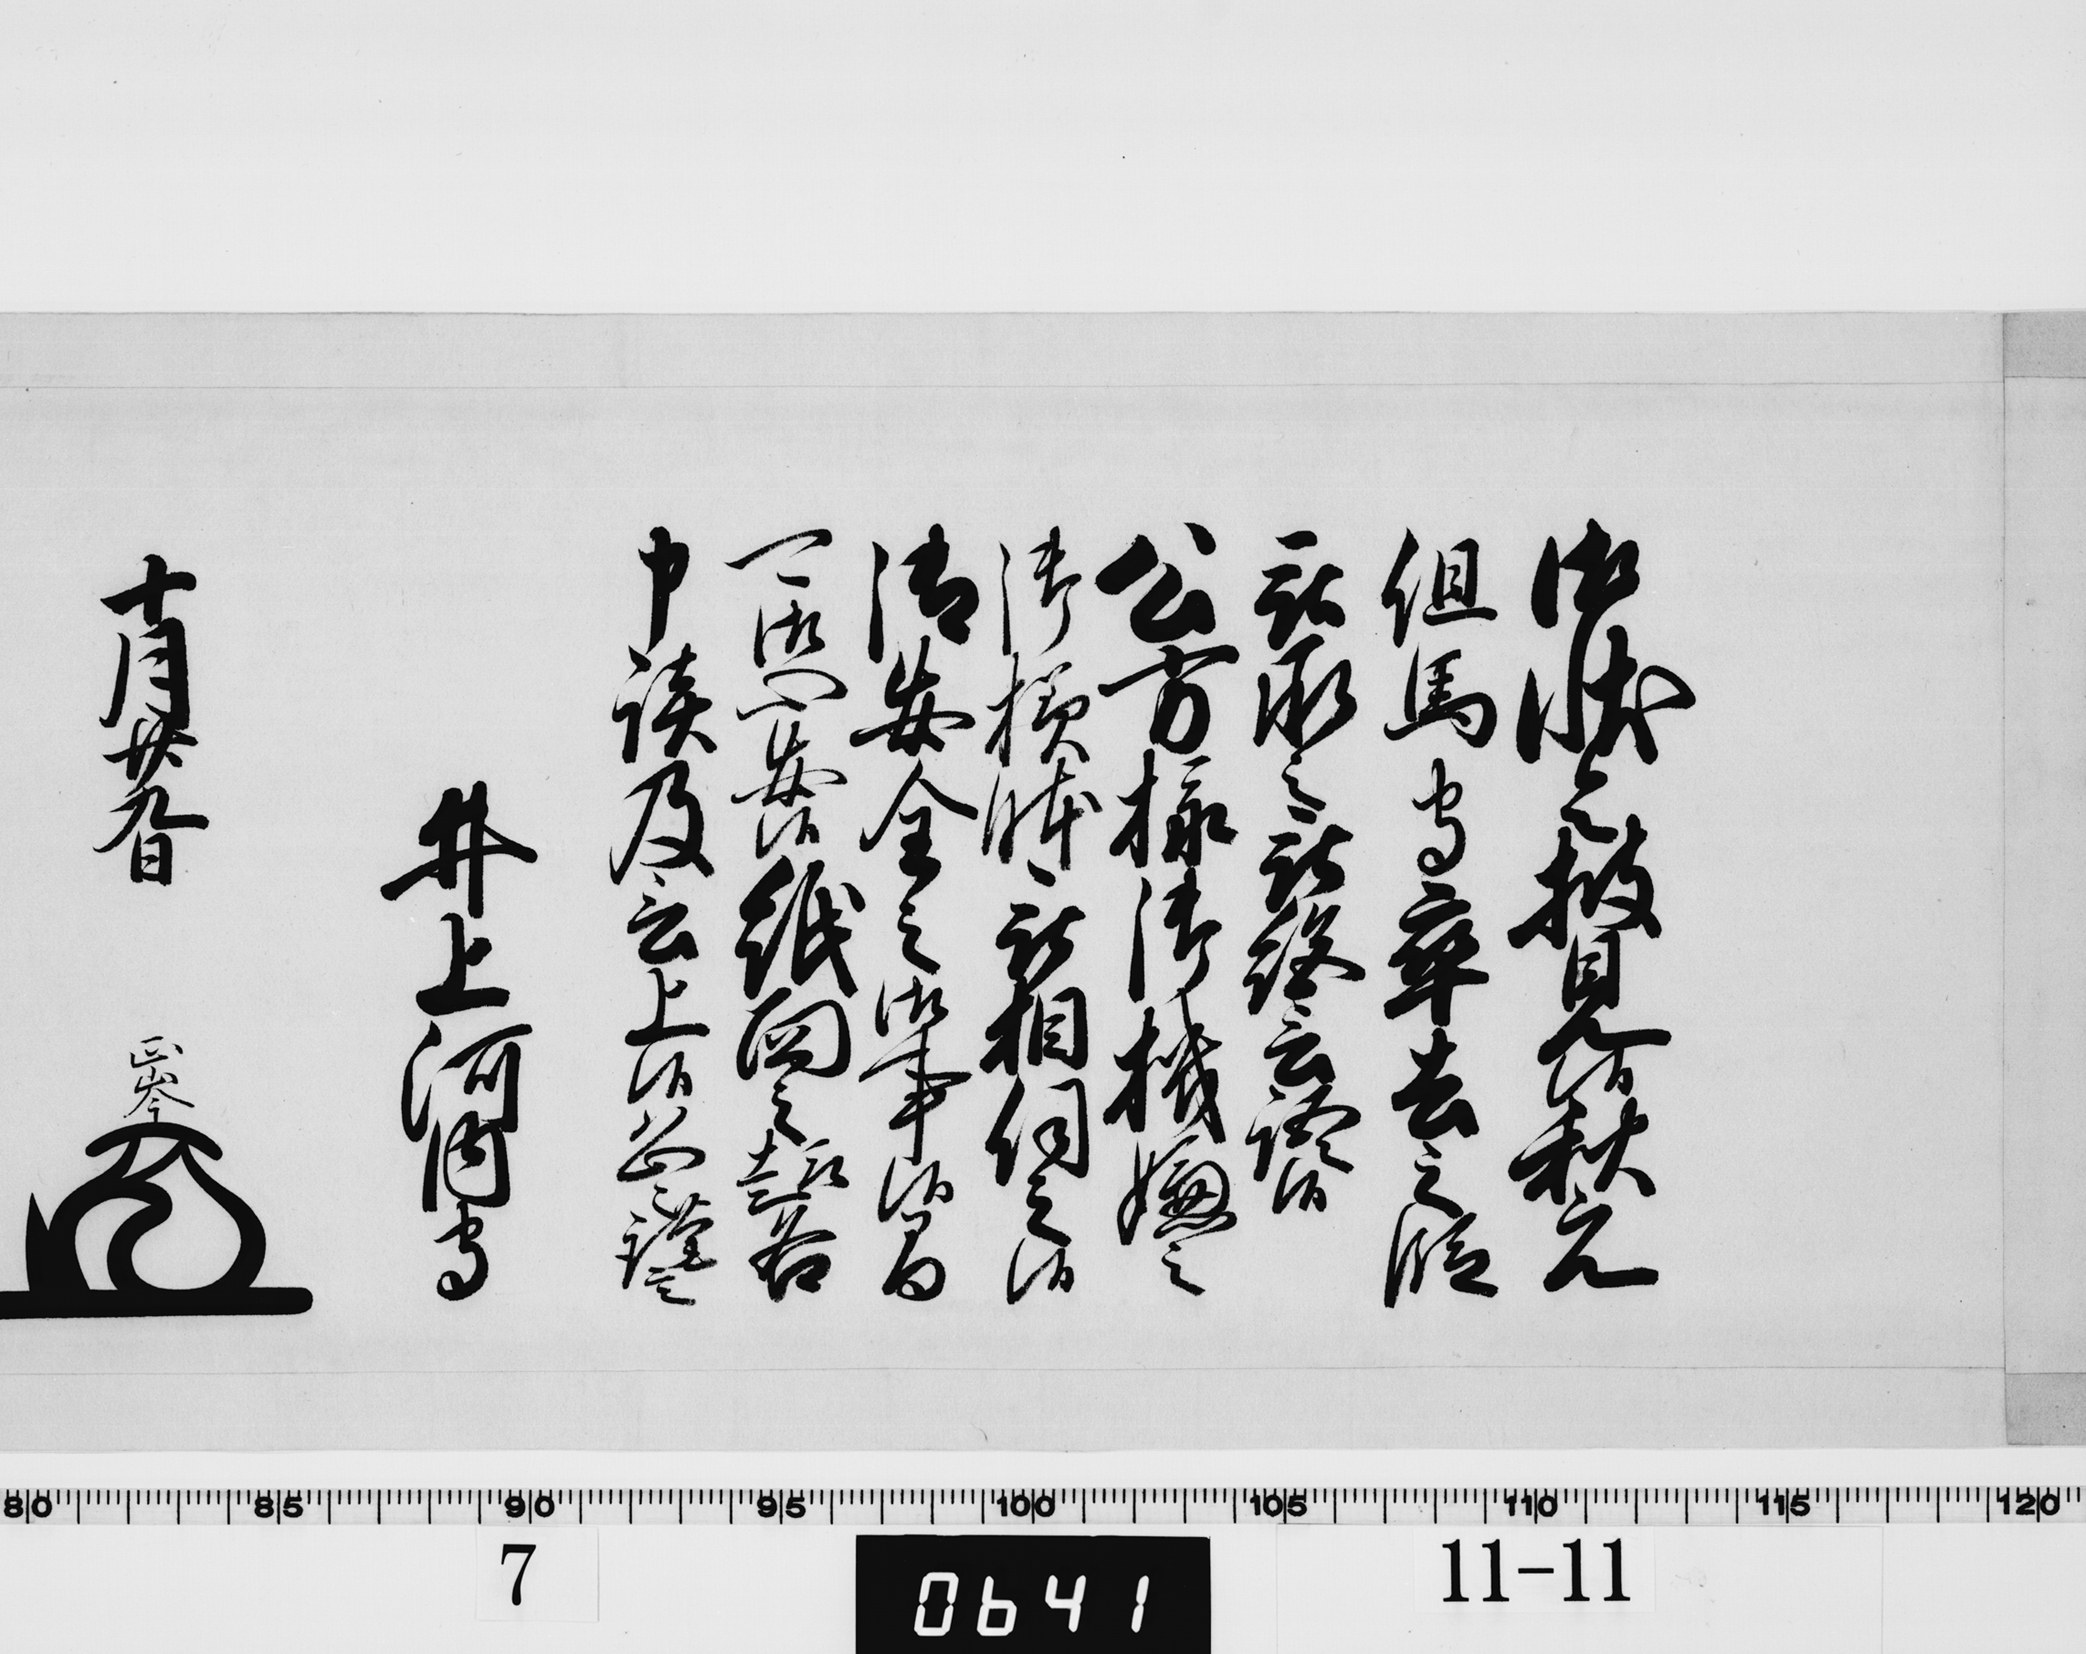 御状令披見候秋元
但馬守卒去之段
被承之被驚候
公方様御機嫌之
御様躰被相伺之候
御安全之御事候間
可御心安候紙面之趣各
申談及言上候恐々謹言
井上河内守
十月廿九日
正岑
80 85 90 95 100 105 110 115 120
7
0641
11-11